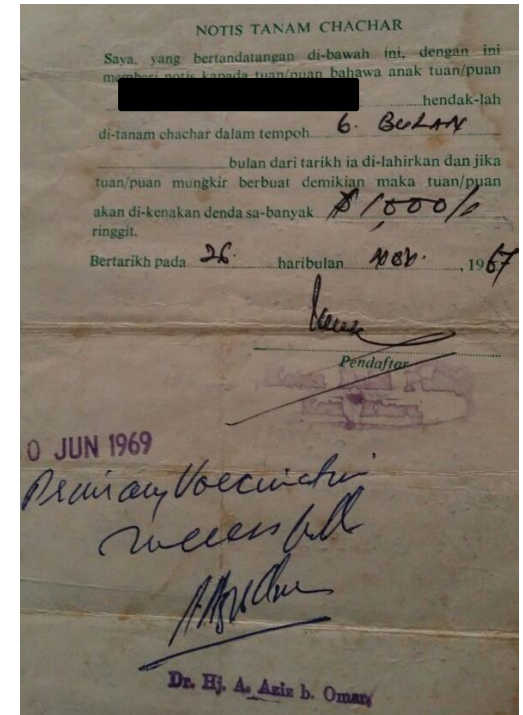 NOTIS TANAM CHACHAR
Saya, yang bertandatangan di-bawah ini, dengan ini
memberi notis kapada tuan/puan bahawa anak tuan/puan
hendak-lah
di-tanam chachar dalam tempoh 6. BULAN
bulan dari tarikh ia di-lahirkan dan jika
tuan/puan mungkir berbuat demikian maka tuan/puan
akan di-kenakan denda sa-banyak $1,000/-
ringgit.
Bertarikh pada 26. haribulan , 1967
Pendaftar
0 JUN 1969
Primary Vaccination
successful
Dr. Hj. A. Aziz b. Omar